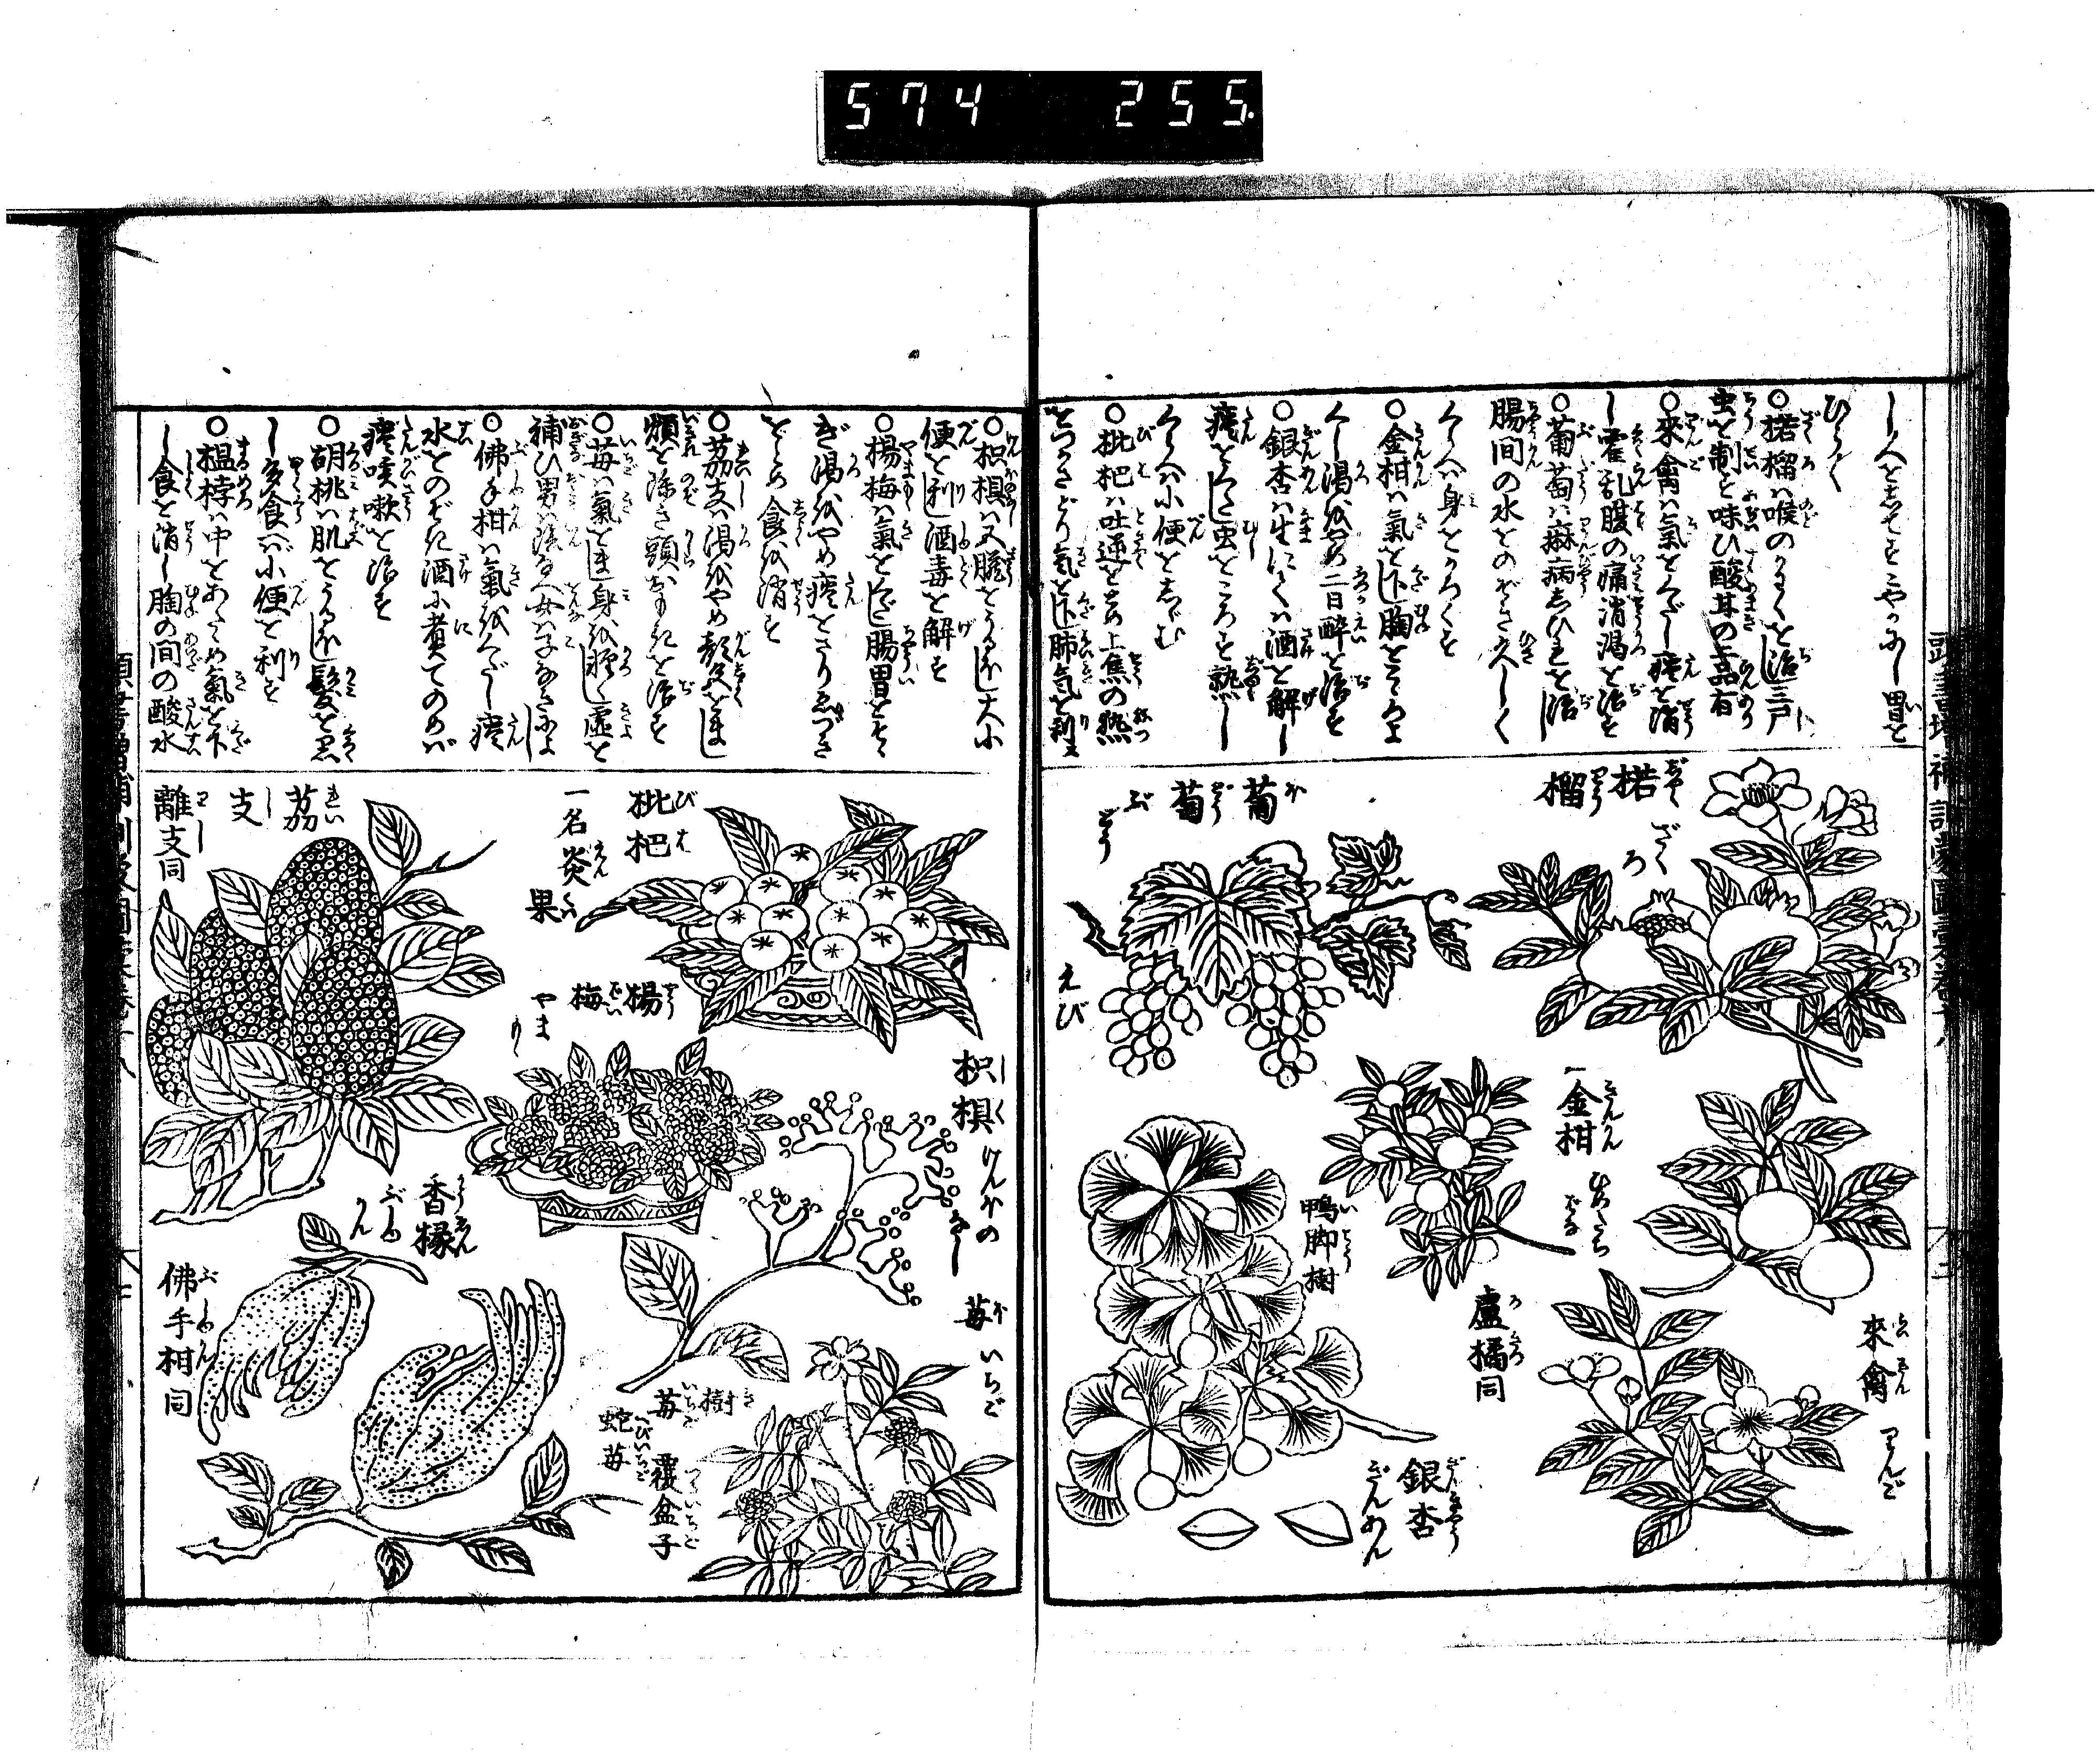 574 255.
ひらく
○楉榴ハ喉のかはくを治し三尸
虫を制す味ひ酸甘の二品有
○來禽ハ氣をくだし痰を消
し霍乱腹の痛消渇を治す
○葡萄ハ麻病しひれを治し
腸間の水をのぞき久しく
くらへハ身をかろくす
○金柑ハ氣を下し胸をこゝろよ
くし渇をやめ二日酔を治す
○銀杏ハ生にてくへハ酒を解し
痰をくだし虫をころす熟し
くらへハ小便をしゞむ
○枇杷ハ吐逆をとめ上焦の熱
をつかさどり気を下し肺気を利す
楉榴
ざくろ
葡萄
ぶどう
えび
金柑
來禽
りんご
盧橘同
鴨脚樹
銀杏
ぎんあん
○枳椇ハ又膽をうるほし大小
便を利し酒毒を解す
○楊梅ハ氣をくだし腸胃をそゝ
ぎ渇をやめ痰をさりゑづき
をとめ食を消す
○茘支ハ渇をやめ顏色をまし
煩を除き頭おもきを治す
○苺ハ氣をまし身を軽くし虚を
補ひ男ハ陰つよく女ハ子なきによし
○佛手柑ハ氣をくだし痰
水をのぞく酒に煮てのめバ
痰咳嗽を治す
○胡桃ハ肌をうるほし髮を黒
し多食へバ小便を利す
○榲桲ハ中をあたゝめ氣を下
し食を消し胸の間の酸水
枇杷
一名炎果
楊梅
やまもゝ
茘支
離支同
枳椇
けんほのなし
香橼
ぶしゆかん
佛手柑同
苺
いちご
樹苺
蛇苺
覆盆子